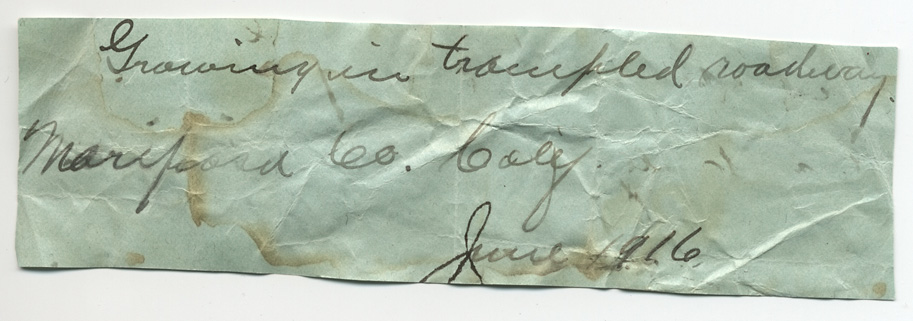 Growing in trampled roadway.
Mariposa Co. Calif.
June 1916